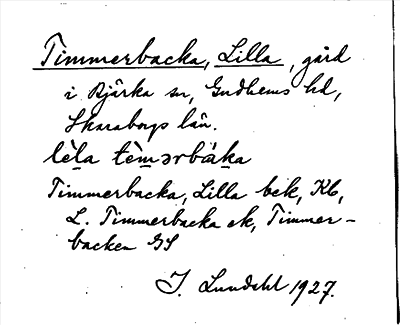 Timmerbacka, Lilla, gård
i Bjärka sn, Gudhems hd,
Skaraborgs län.
lèla tèmərbàka
Timmerbacka, Lilla bek, Kb,
L. Timmerbacka ek, Timmer-
backen GS
J. Lundahl 1927.